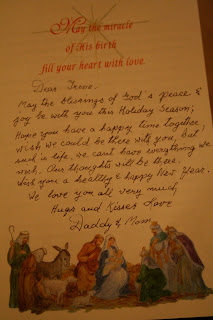 May the miracle
of His birth
fill your heart with love
Dear Irene.
May the blessings of God's peace &
joy be with you this Holiday Season;
Hope you have a happy time together.
Wish we could be there with you, but
such is life, we can't have everything we
wish. Our thoughts will be there.
Wish you a healthy & happy New Year.
We love you all very much,
Hugs and Kisses Love
Daddy & Mom